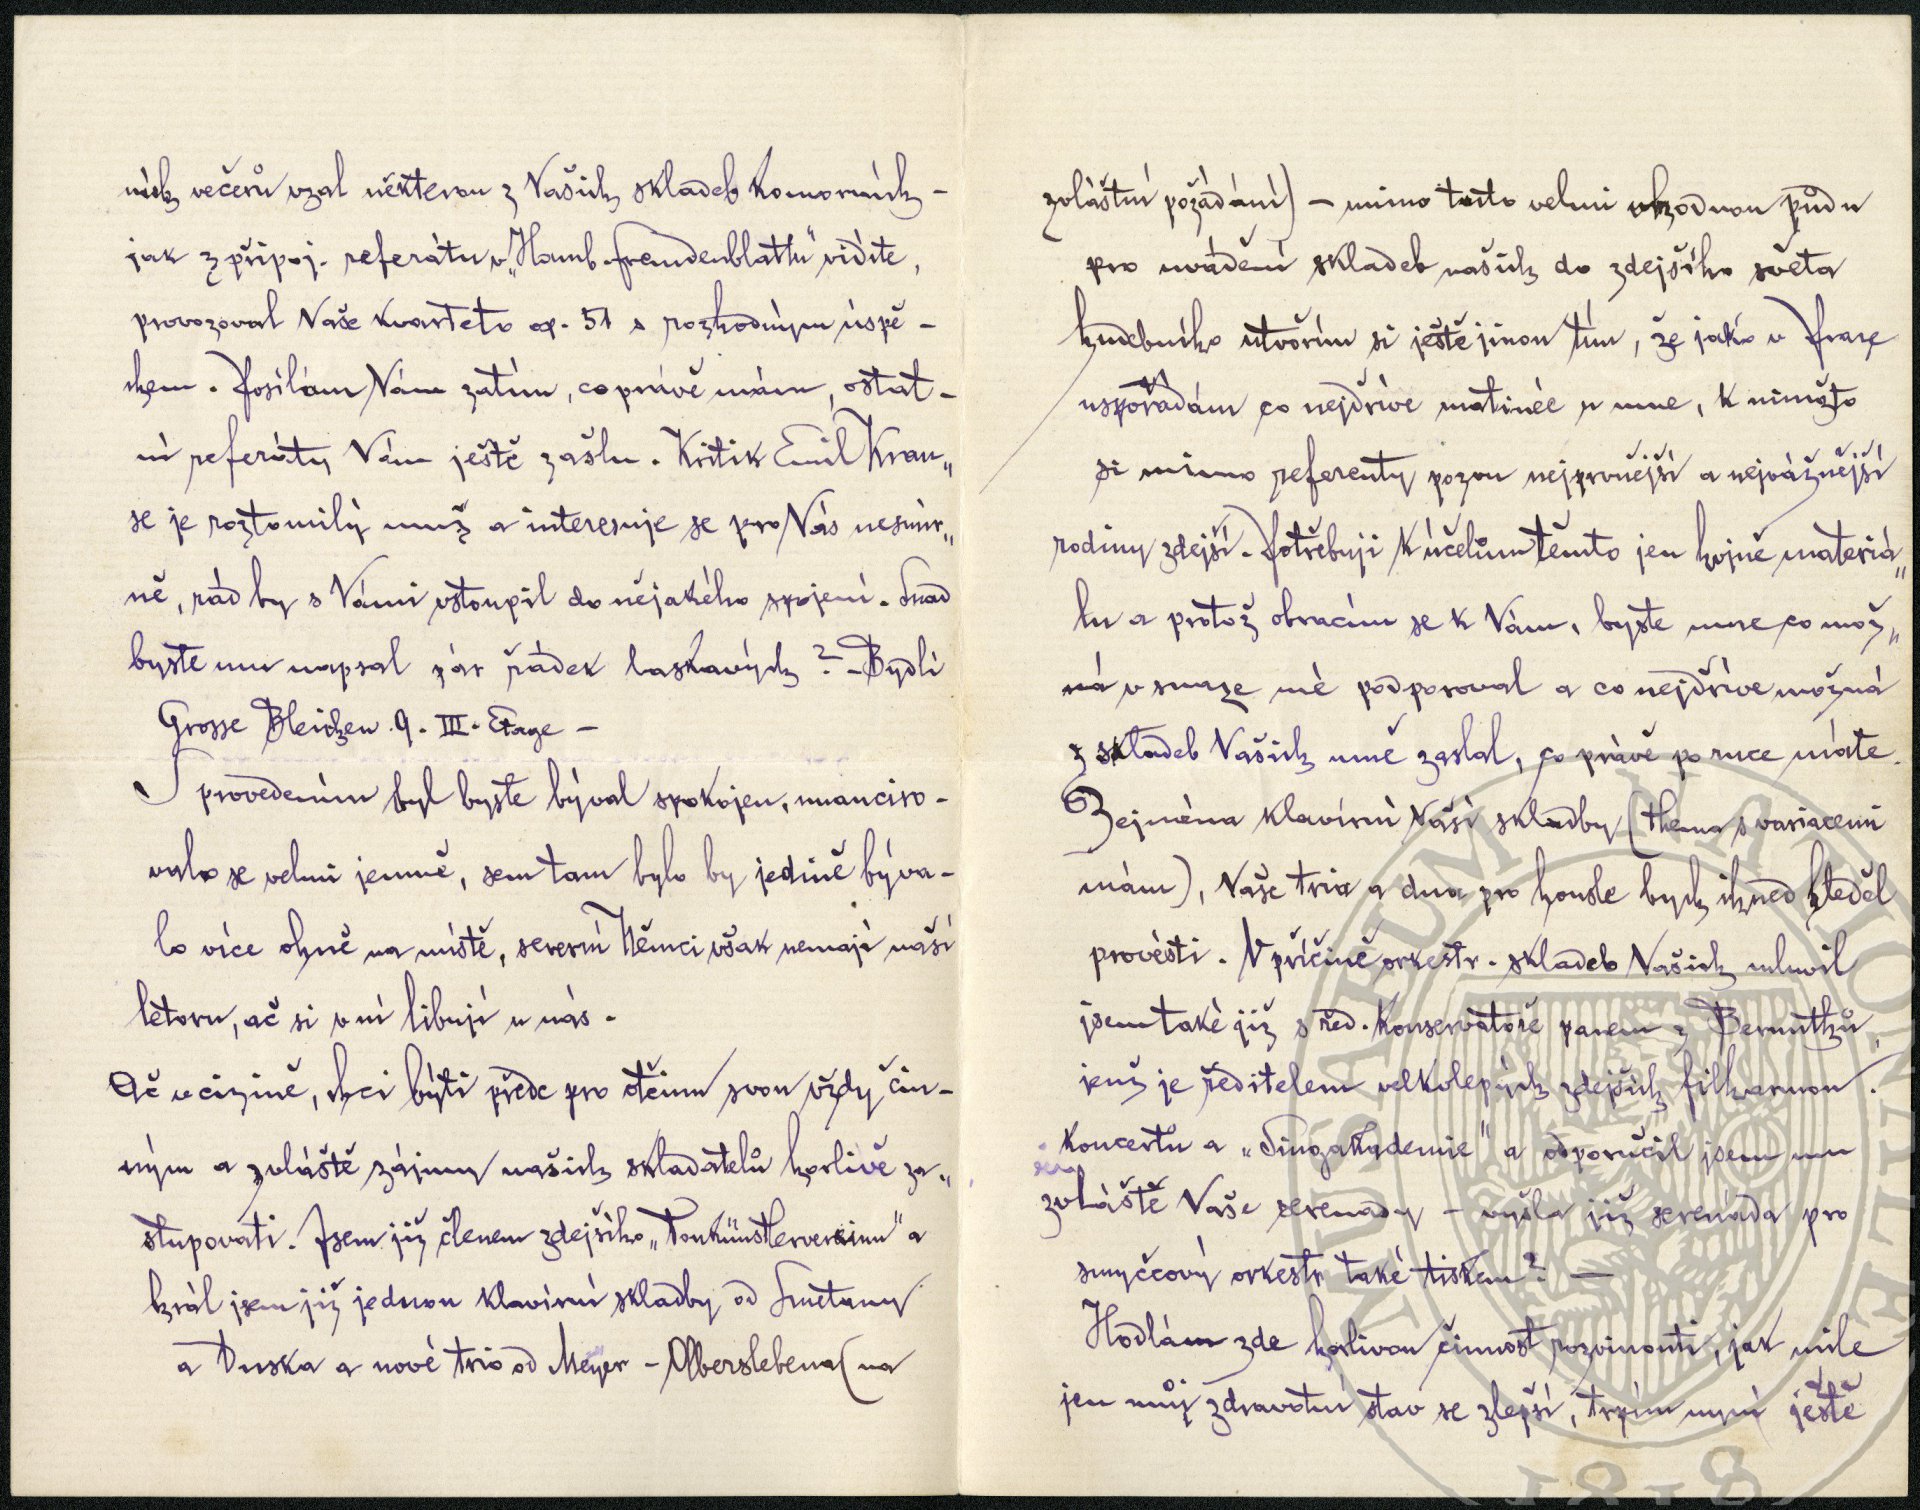 ních večerů vzal některou z Vašich skladeb komorních -
jak z připoj. referátu v „Hamb. fremdenblattu" vidíte,
provozoval Vaše kvarteto op. 51 s rozhodným úspě -
chem. Posílám Vám zatím, co právě mám, ostat -
ní referáty Vám ještě zašlu. Kritik Emil Krau„
se je roztomilý muž a interesuje se pro Vás nesmír„
ně, rád by s Vámi vstoupil do nějakého spojení. Snad
byste mu napsal pár řádek laskavých? - Bydlí
Grosse Bleichen 9. III. Etage -
S provedením byl byste býval spokojen, nuanciro -
valo se velmi jemně, sem tam bylo by jedině býva -
lo více ohně na místě, severní Němci však nemají naší
letoru, ač si v ní libují u nás.
Ač v cizině, chci býti přede pro otčinu svou vždy čin -
ným a zvláště zájmy našich skladatelů horlivě za„
stupovati. Jsem již členem zdejšího „Tonkünstlervereinu" a
hrál jsem již jednou klavírní skladby od Smetany
a Duska a nové trio od Meyer - Olberslebena (na
zvláštní požádání) - mimo tuto velmi vhodnou půdu
pro uvádění skladeb našich do zdejšího světa
hudebního utvořím si ještě jinou tím, že jako v Praze
uspořádám co nejdříve matinée u mne, k nimžto
si mimo referenty pozvu nejprvnější a nejvážnější
rodiny zdejší. Potřebuji k účelům těmto jen hojně materiá„
lu a protož obracím se k Vám, byste mne co mož„
ná v snaze mé podporoval a co nejdříve možná
z skladeb Vašich mně zaslal, co právě po ruce máte.
Zejména klavírní Vaší skladby (thema s variacemi
mám), Vaše tria a dua pro housle bych ihned hleděl
provésti. V příčině orkestr. skladeb Vašich mluvil
jsem také již s řed. konservatoře panem z Bernuthů,
jenž je ředitelem velkolepých zdejších filharmon.
koncertů a „Singakademie" a odporučil jsem mu
zvláště Vaše serenady - vyšla již serenáda pro
smyčcový orkestr také tiskem? -
Hodlám zde horlivou činnost rozvinouti, jak mile
jen můj zdravotní stav se zlepší, trpím nyní ještě
MUSAEUM NATIONALE
1818